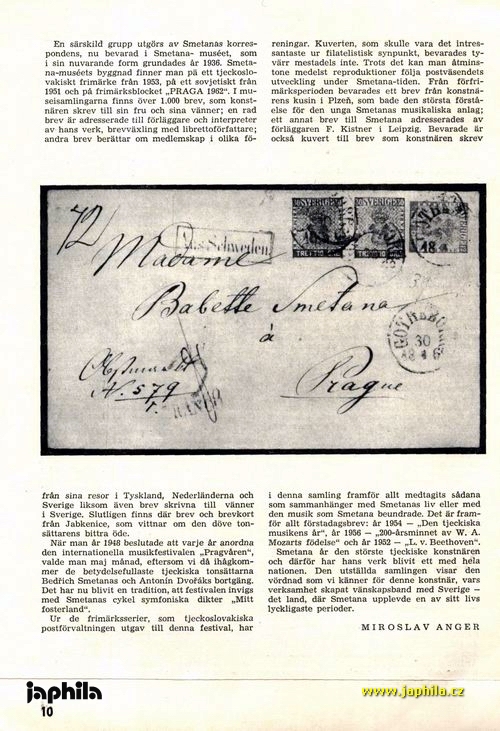 En särskild grupp utgörs av Smetanas korres-
pondens, nu bevarad i Smetana- muséet, som
i sin nuvarande form grundades år 1936. Smeta-
na-muséets byggnad finner man på ett tjeckoslo-
vakiskt frimärke från 1953, på ett sovjetiskt från
1951 och på frimärksblocket „PRAGA 1962". I mu-
seisamlingarna finns över 1.000 brev, som konst-
nären skrev till sin fru och sina vänner; en rad
brev är adresserade till förläggare och interpreter
av hans verk, brevväxling med librettoförfattare;
andra brev berättar om medlemskap i olika fö-
reningar. Kuverten, som skulle vara det intres-
santaste ur filatelistisk synpunkt, bevarades ty-
värr mestadels inte. Trots det kan man åtmins-
tone medelst reproduktioner följa postväsendets
utveckling under Smetana-tiden. Från förfri-
märksperioden bevarades ett brev från konstnä-
rens kusin i Plzeň, som bade den största förstå-
else för den unga Smetanas musikaliska anlag;
ett annat brev till Smetana adresserades av
förläggaren F. Kistner i Leipzig. Bevarade är
också kuvert till brev som konstnären skrev
72
Aus Schweden
SVERIGE
SVERIGE
TRETTIO ÖRE
Madame
Babette Smetana
à
Prague
N. 579
FRANCO
GÖTHEBORG
30
från sina resor i Tyskland, Nederländerna och
Sverige liksom även brev skrivna till vänner
i Sverige. Slutligen finns där brev och brevkort
från Jabkenice, som vittnar om den döve ton-
sättarens bittra öde.
När man år 1948 beslutade att varje år anordna
den internationella musikfestivalen „Pragvåren",
valde man maj månad, eftersom vi då ihågkom-
mer de betydelsefullaste tjeckiska tonsättarna
Bedřich Smetanas och Antonín Dvořáks bortgång.
Det har nu blivit en tradition, att festivalen invigs
med Smetanas cykel symfoniska dikter „Mitt
fosterland".
Ur de frimärksserier, som tjeckoslovakiska
postförvaltningen utgav till denna festival, har
i denna samling framför allt medtagits sådana
som sammanhänger med Smetanas liv eller med
den musik som Smetana beundrade. Det är fram-
för allt förstadagsbrev: år 1954 — „Den tjeckiska
musikens år", år 1956 — „200-årsminnet av W. A.
Mozarts födelse" och år 1952 — „L. v. Beethoven".
Smetana är den störste tjeckiske konstnären
och därför har hans verk blivit ett med hela
nationen. Den utställda samlingen visar den
vördnad som vi känner för denne konstnär, vars
verksamhet skapat vänskapsband med Sverige —
det land, där Smetana upplevde en av sitt livs
lyckligaste perioder.
MIROSLAV ANGER
japhila
www.japhila.cz
10